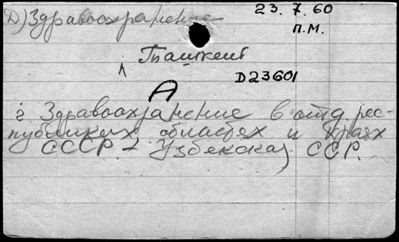 Д) Здравоохранение 23.7.60
П.М.
Ташкент
D23601
А
г Здравоохранение в отд. рес-
публиках областях и краях
СССР. 2. Узбекская ССР.